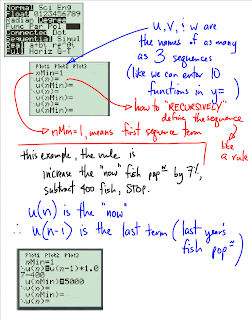 Normal Sci Eng
Float 0123456789
Radian Degree
Func Par Pol Seq
Connected Dot
Sequential Simul
Real a+bi re^θi
Full Horiz G-T
u, v, & w are
the names of as many
as 3 sequences
(like we can enter 10
functions in y=)
Plot1 Plot2 Plot3
nMin=1
u(n)=
u(nMin)=
v(n)=
v(nMin)=
w(n)=
w(nMin)=
how to "RECURSIVELY"
define the sequence
like
a rule
nMin=1, means first sequence term
this example, the rule is
increase the "now" fish pop'n by 7%,
subtract 400 fish, STOP.
u(n) is the "now"
∴ u(n-1) is the last term (last years
fish pop'n)
Plot1 Plot2 Plot3
nMin=1
u(n)=u(n-1)*1.0
7-400
u(nMin)=5000
v(n)=
v(nMin)=
w(n)=